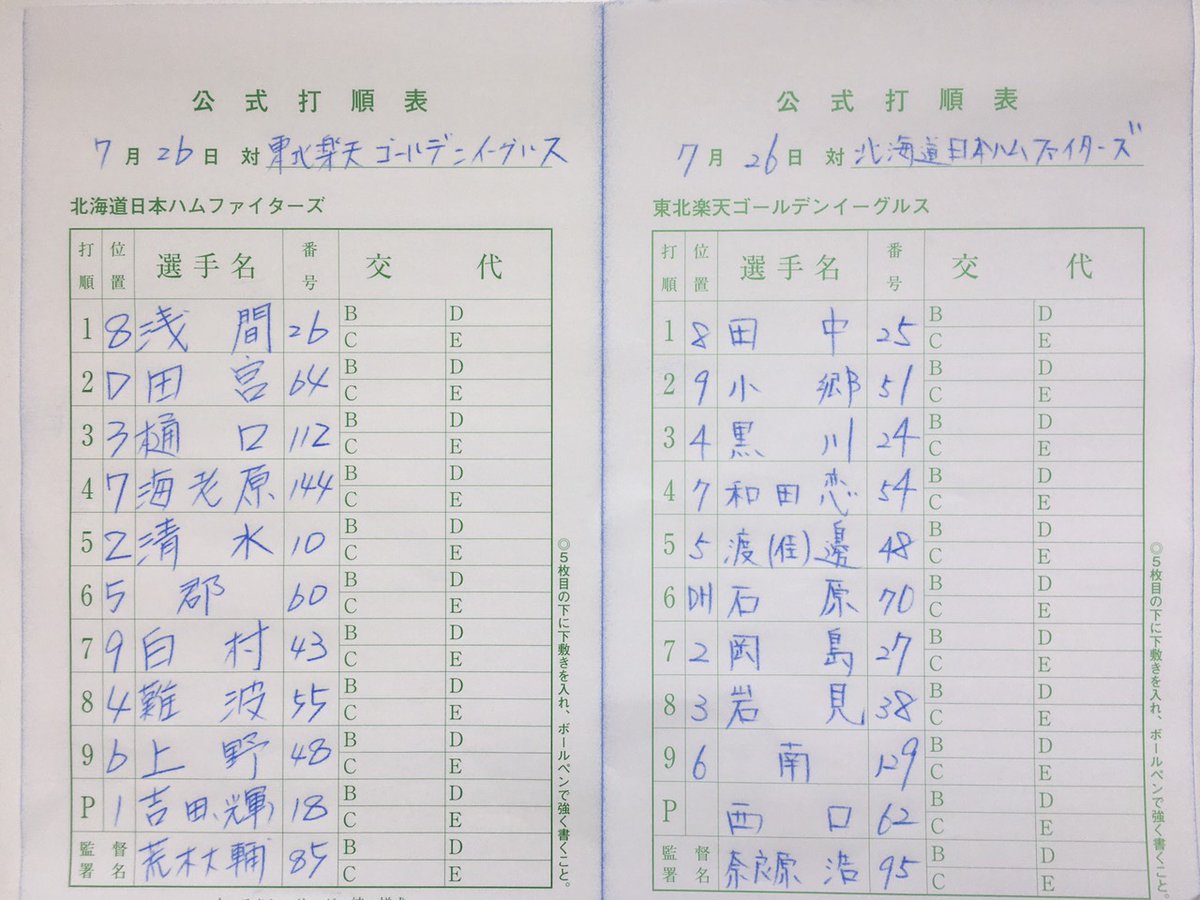 公式打順表
7月26日 対 東北楽天ゴールデンイーグルス
北海道日本ハムファイターズ
打順 位置 選手名 番号 交代
1 8 浅間 26 B D C E
2 D 田宮 64 B D C E
3 3 樋口 112 B D C E
4 7 海老原 144 B D C E
5 2 清水 10 B D C E
6 5 郡 60 B D C E
7 9 白村 43 B D C E
8 4 難波 55 B D C E
9 6 上野 48 B D C E
P 1 吉田、輝 18 B D C E
監督署名 荒木大輔 85 B D C E
◎5枚目の下に下敷きを入れ、ボールペンで強く書くこと。
公式打順表
7月26日 対 北海道日本ハムファイターズ
東北楽天ゴールデンイーグルス
打順 位置 選手名 番号 交代
1 8 田中 25 B D C E
2 9 小郷 51 B D C E
3 4 黒川 24 B D C E
4 7 和田恋 54 B D C E
5 5 渡(佳)邊 48 B D C E
6 DH 石原 70 B D C E
7 2 岡島 27 B D C E
8 3 岩見 38 B D C E
9 6 南 129 B D C E
P 西口 62 B D C E
監督署名 奈良原浩 95 B D C E
◎5枚目の下に下敷きを入れ、ボールペンで強く書くこと。